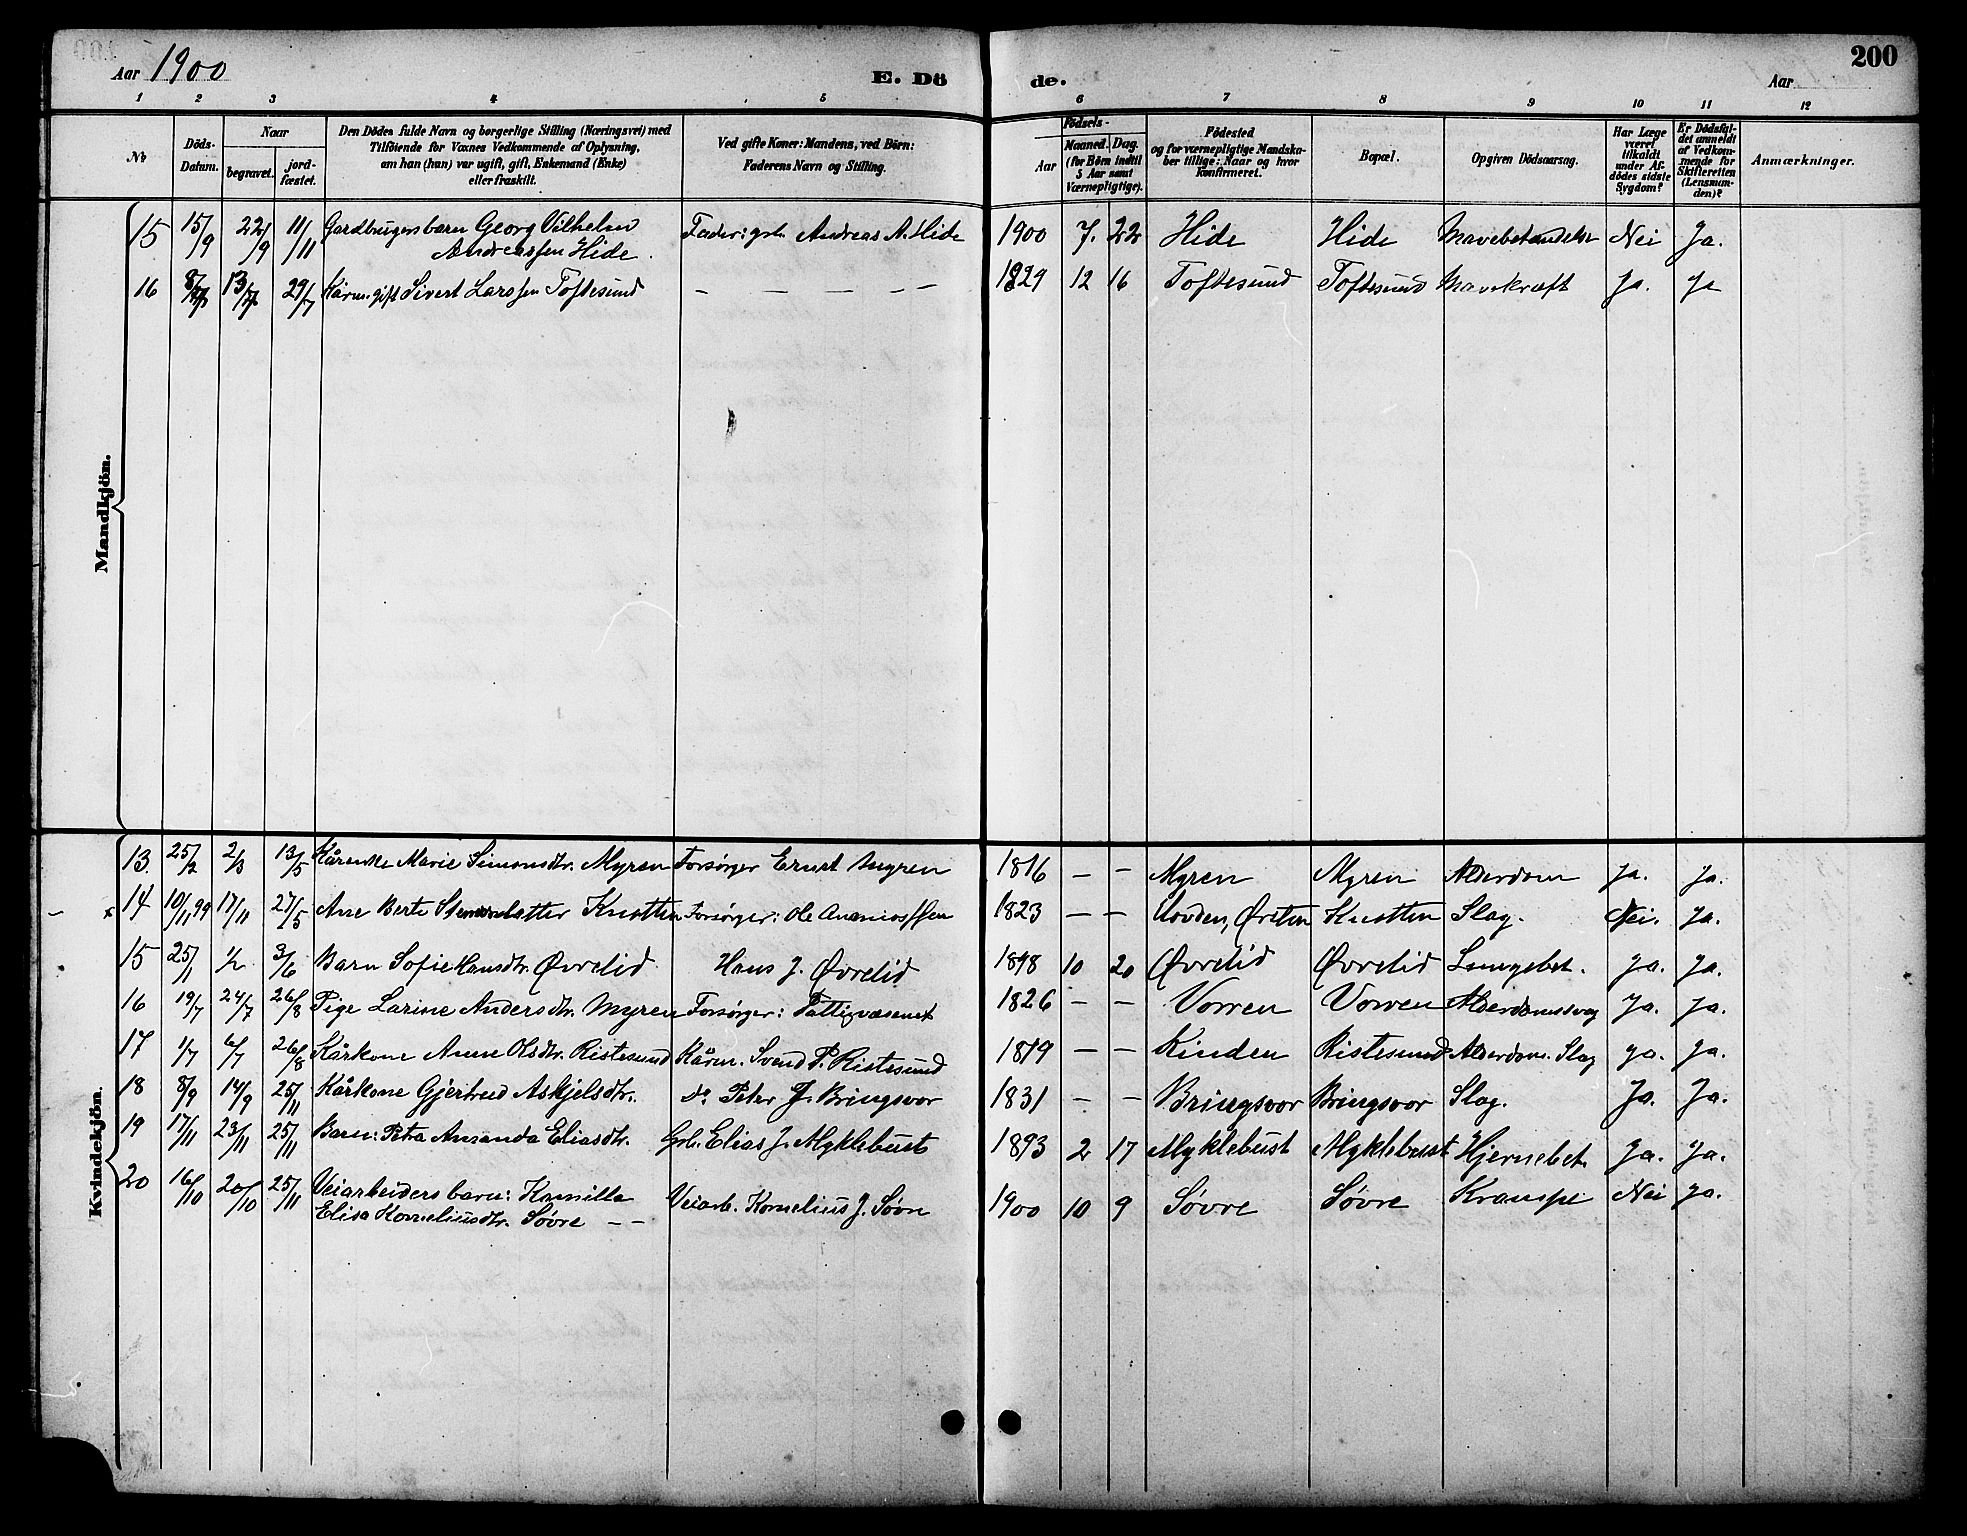 Aar 1900
E. Dö
de.
Aar
200
1 2 3 4 5 6 7 8 9 10 11 12
Nr
Döds-Datum.
Naar
begravet.
jordfæstet.
Den Dödes fulde Navn og borgerlige Stilling (Næringsvei) med
Tilföiende for Voxnes Vedkommende af Oplysning,
om han (hun) var ugift, gift, Enkemand (Enke)
eller fraskilt.
Ved gifte Koner: Mandens, ved Börn:
Faderens Navn og Stilling.
Födsels-
Aar
Maaned. Dag.
(for Börn indtil
5 Aar samt
Værnepligtige).
Födested
og for værnepligtige Mandska-
ber tillige: Naar og hvor
konfirmeret.
Bopæl.
Opgiven Dödsaarsag.
Har Læge
været
tilkaldt
under Af-
dödes sidste
Sygdom?
Er Dödsfal-
det anmeldt
af Vedkom-
mende for
Skifteretten
(Lensman-
den)?
Anmærkninger.
Mandkjön.
15 15/9 22/9 11/11 Gardbrugersbarn Georg Vilhelm Fader: grb. Andreas A. Hide 1900 7. 22 Hide Hide Mavebetændelse Nei Ja.
Andreassen Hide.
16 8/7 13/7 29/7 Kårm. gift Sivert Larssen Toftesund — — — — 1829 12 16 Toftesund Toftesund Mavekræft Ja. Ja
Kvindekjön.
13. 25/2 2/3 13/5 Kårenke Marie Simonsdtr. Myren Forsørger Ernst Myren 1816 — — Myren Myren Alderdom Ja. Ja.
14 10/11 99 17/11 27/5 Ane Berte Knotten Forsørger: Ole Ananiassen 1823 — — Hovden, Ørsten Knotten Slag. Nei. Ja.
15 25/1 1/2 3/6 Barn Sofie Hansdtr. Øvrelid Hans J. Øvrelid 1898 10 20 Øvrelid Øvrelid Lungebet. Ja. Ja.
16 19/7 24/7 26/8 Pige Larine Andersdtr. Myren Forsørger: Fattigvæsenet 1826 — — Vorren Vorren Alderdomssvag Ja. Ja.
17 1/7 6/7 26/8 Kårkone Anne Olsdtr. Ristesund Kårm. Svend P. Ristesund 1819 — — Kinden Ristesund Alderdom. Slag Ja. Ja.
18 8/9 14/9 25/11 Kårkone Gjertrud Askjelsdtr. Do. Peter J. Bringsvor 1831 — — Bringsvor Bringsvor Slag. Ja. Ja.
19 17/11 23/11 25/11 Barn: Petra Amanda Eliasdtr. Grb. Elias J. Myklebust 1893 2 17 Myklebust Myklebust Hjernebet. Ja. Ja.
20 16/10 20/10 25/11 Veiarbeidersbarn: Kamilla Veiarb. Kornelius J. Søvre 1900 10 9 Søvre Søvre Krampe Nei Ja.
Elisa Korneliusdtr. Søvre — —